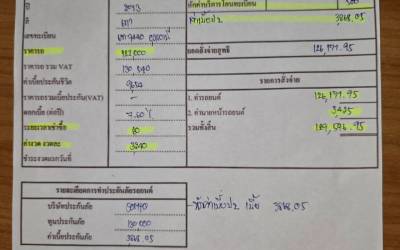 ปี 2013
หักค่าบริการโอนทะเบียน 500
สี เทา
ค่าเบี้ยประกัน 3868.05
เลขทะเบียน
ราคารถ
ยอดสั่งจ่ายสุทธิ 126,171.95
ราคารถ รวม VAT 130,540
ค่าเบี้ยประกันชีวิต
รายการสั่งจ่าย
ราคารถรวมเบี้ยประกัน(VAT) -
1. ค่ารถยนต์ 126,171.95
ดอกเบี้ย (ต่อปี) 7.60 %
2. ค่านายหน้ารถยนต์ 3,425
ระยะเวลาเช่าซื้อ 60
รวมทั้งสิ้น 129,596.95
ค่างวด งวดละ 3240
ชำระงวดแรกวันที่
รายละเอียดการทำประกันภัยรถยนต์
บริษัทประกันภัย
ทุนประกันภัย 130,000
ค่าเบี้ยประกันภัย 3868.05